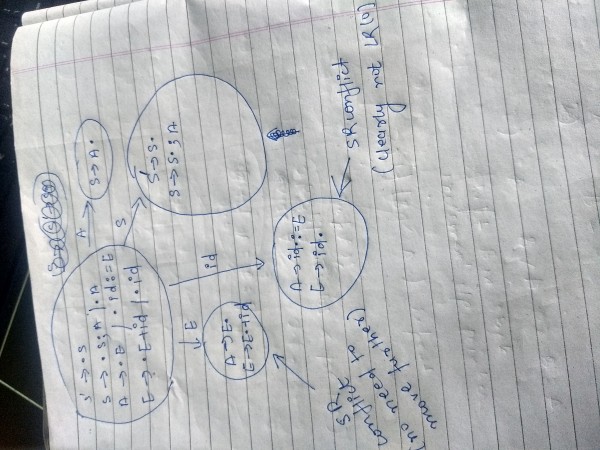 S' → .S
S → .S;A | .A
A → .E | .id:=E
E → .E+id | .id
A
S → A.
S
S' → S.
S → S.;A
id
A → id.:=E
E → id.
SR conflict
(clearly not LR(0)
E
A → E.
E → E.+id
SR
conflict
(no need to
move further)